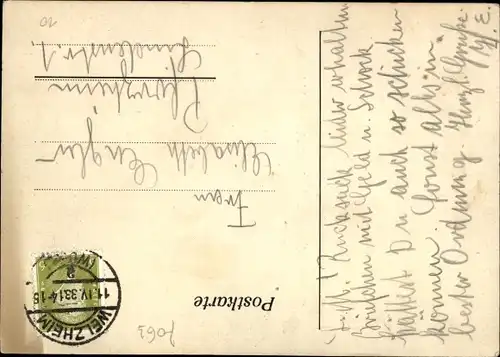 Postkarte
Frau
Elisabeth Engler
Pforzheim
Lindenstr. 1.
Rucksack leider erhalten
Briefchen mit Geld u. Scheck
hättest Du auch so schicken
können. Sonst alles in
bester Ordnung. Herzl. Grüße
WELZHEIM
11.IV.33.14-15
7063
10